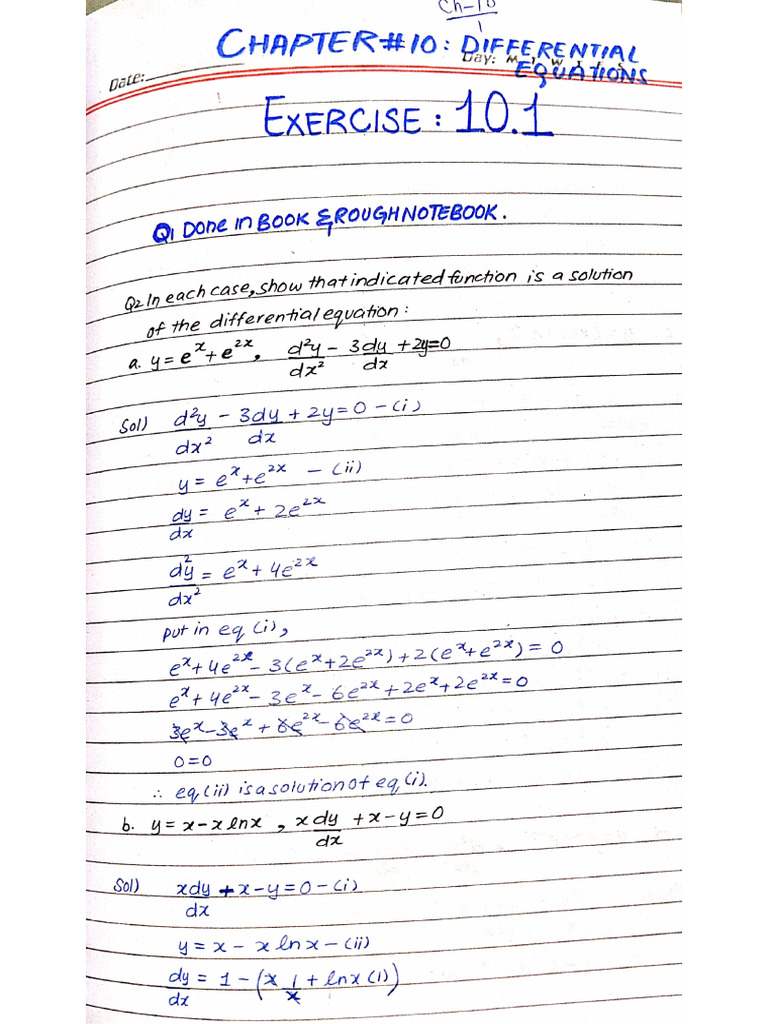 Ch-10
1
CHAPTER#10: DIFFERENTIAL
Date: Day: M T W T F S
EQUATIONS
EXERCISE: 10.1
Q1 Done in BOOK & ROUGH NOTEBOOK.
Q2 In each case, show that indicated function is a solution
of the differential equation:
a. y = e^x + e^2x, d²y/dx² - 3dy/dx + 2y=0
Sol) d²y/dx² - 3dy/dx + 2y = 0 - (i)
y = e^x + e^2x - (ii)
dy/dx = e^x + 2e^2x
d²y/dx² = e^x + 4e^2x
put in eq (i),
e^x + 4e^2x - 3(e^x + 2e^2x) + 2(e^x + e^2x) = 0
e^x + 4e^2x - 3e^x - 6e^2x + 2e^x + 2e^2x = 0
3e^x - 3e^x + 6e^2x - 6e^2x = 0
0 = 0
∴ eq (ii) is a solution of eq (i).
b. y = x - x lnx, xdy/dx + x - y = 0
Sol) xdy/dx + x - y = 0 - (i)
y = x - x lnx - (ii)
dy/dx = 1 - (x 1/x + lnx (1))